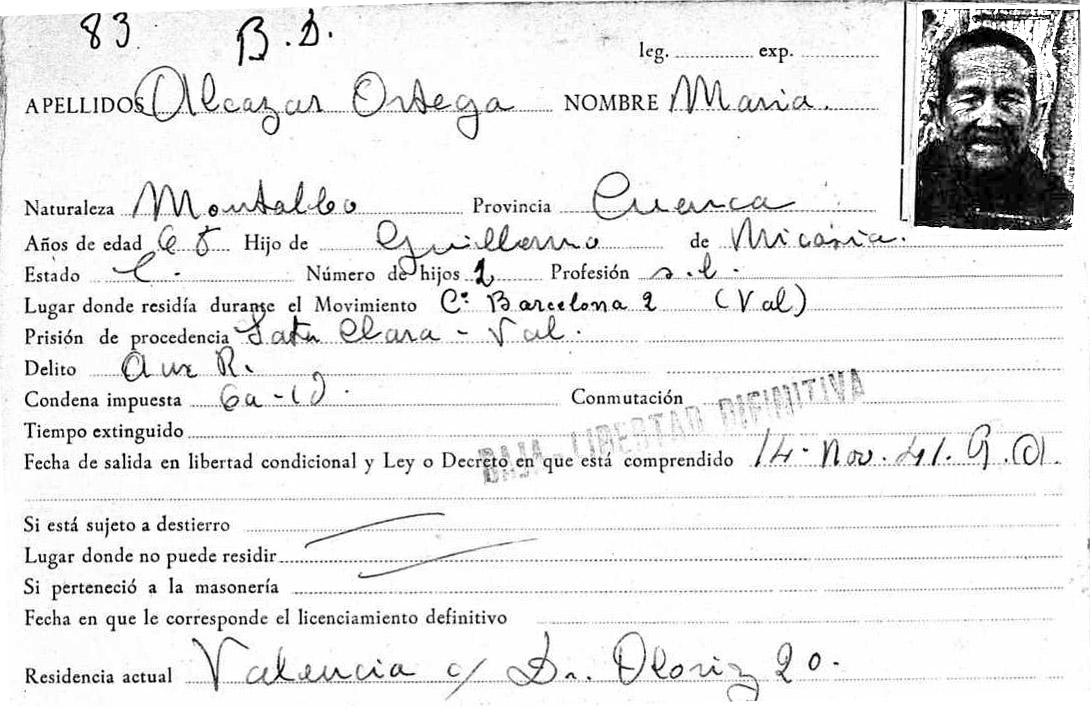 83 B.D.
leg. exp.
APELLIDOS Alcazar Ortega NOMBRE Maria.
Naturaleza Montalbo Provincia Cuenca
Años de edad 65 Hijo de Guillermo de Micaria.
Estado C. Número de hijos 2 Profesión s.l.
Lugar donde residía durante el Movimiento C. Barcelona 2 (Val)
Prisión de procedencia Santa Clara - Val.
Delito Aux R.
Condena impuesta 6a-1d. Conmutación
Tiempo extinguido
BAJA - LIBERTAD DIFINITIVA
Fecha de salida en libertad condicional y Ley o Decreto en que está comprendido 14. Nov. 41.
Si está sujeto a destierro
Lugar donde no puede residir
Si perteneció a la masonería
Fecha en que le corresponde el licenciamiento definitivo
Residencia actual Valencia c/ Dr. Oloriz 20.